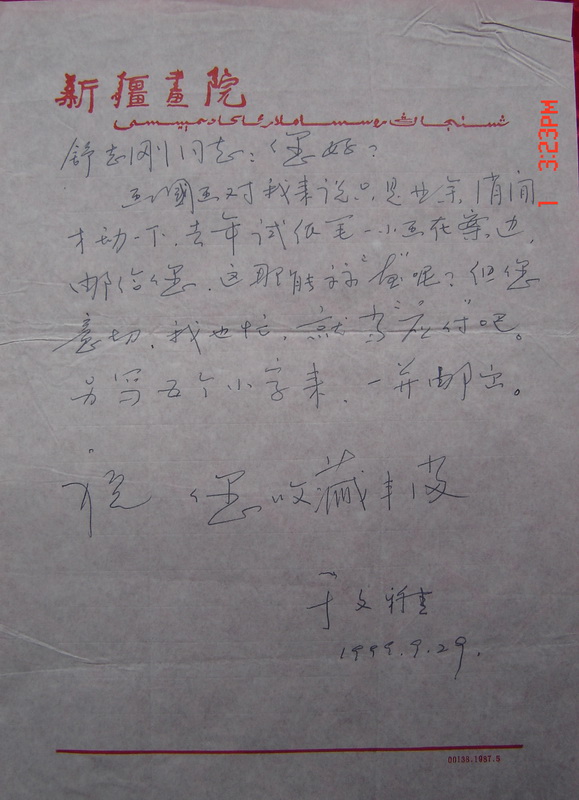 新疆畫院
舒志刚同志：您好？
画國画对我来说只是业余，消闲
才动一下，去年试纸笔一小画在案边，
邮给您，这那能称"画"呢？但您
意切，我也忙，就当"应付"吧。
另写五个小字来，一并邮出。
祝 您收藏丰富
于文
1999.9.29.
00138.1987.5
1 3:23PM